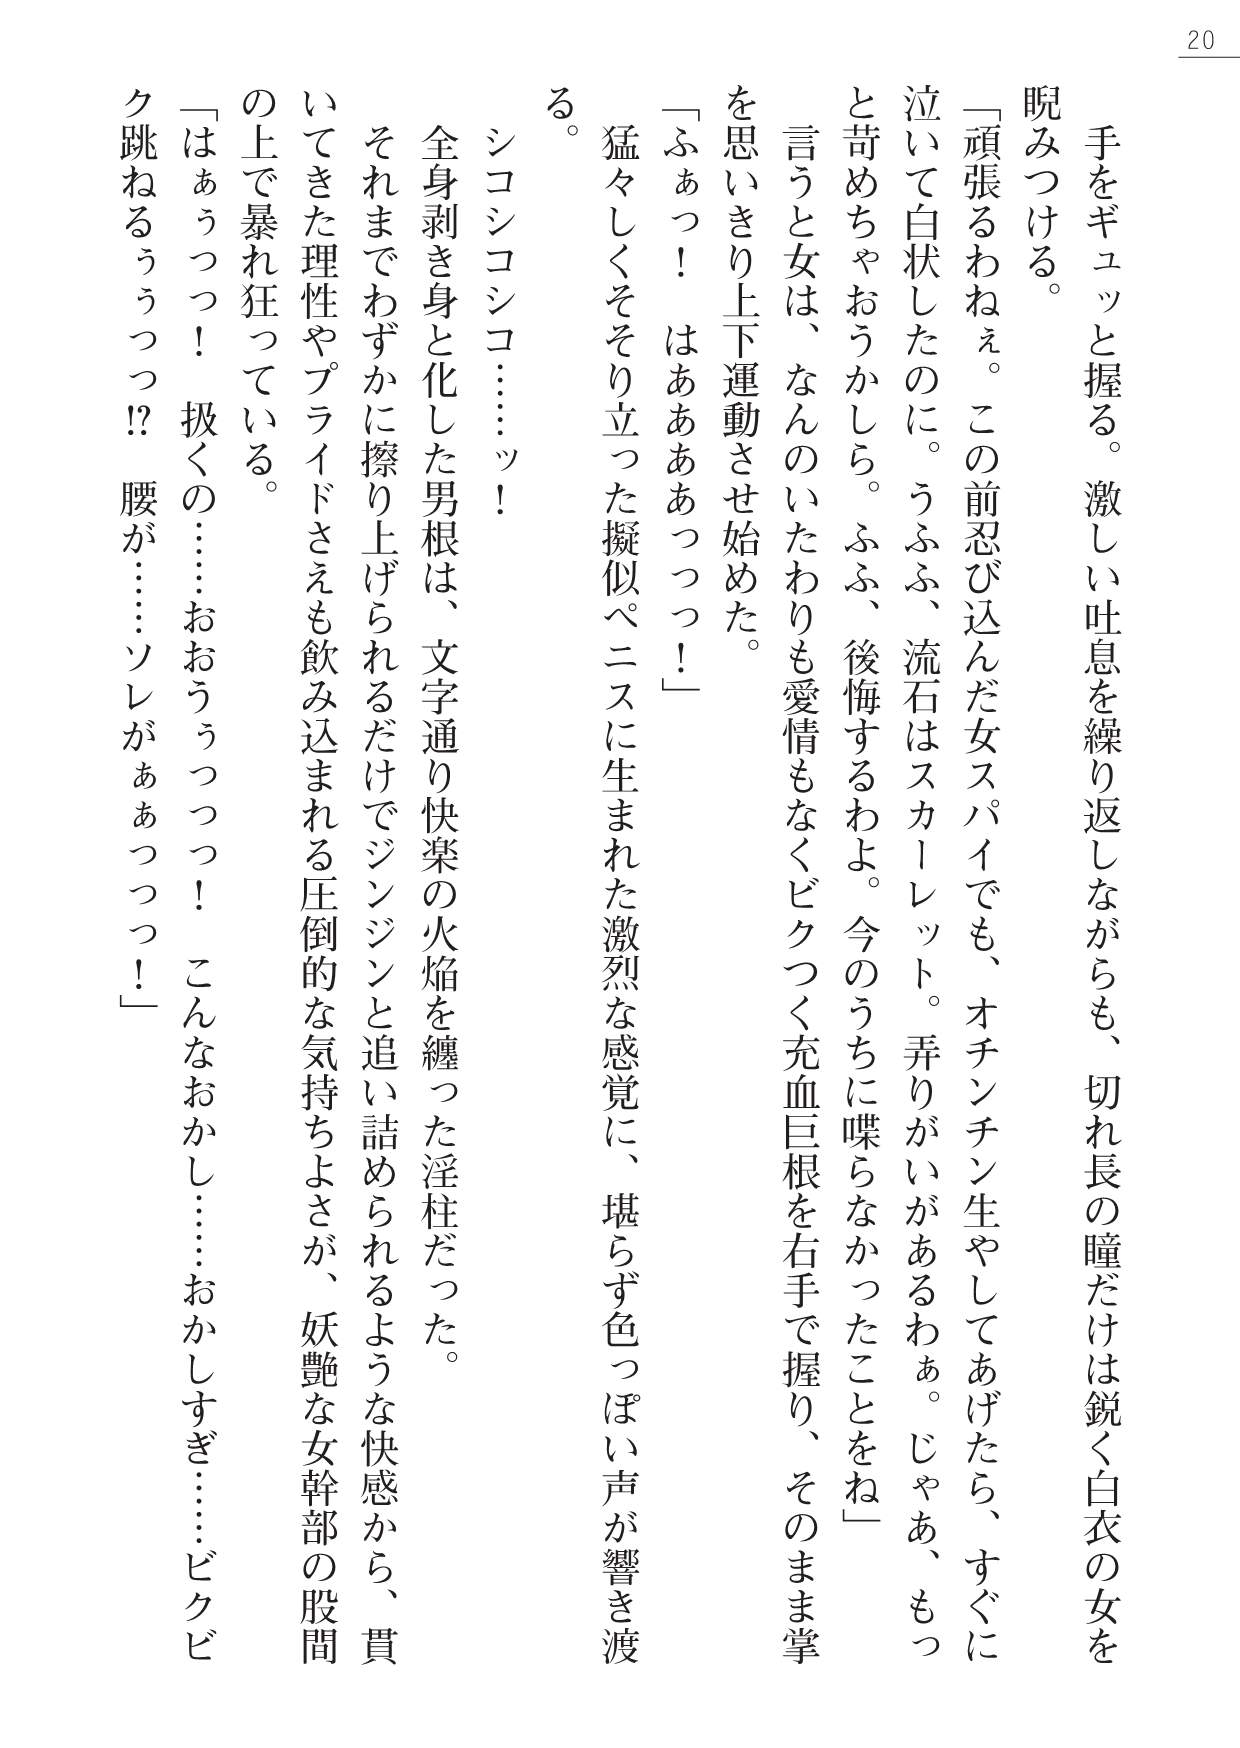 20
　手をギュッと握る。激しい吐息を繰り返しながらも、切れ長の瞳だけは鋭く白衣の女を
睨みつける。
「頑張るわねぇ。この前忍び込んだ女スパイでも、オチンチン生やしてあげたら、すぐに
泣いて白状したのに。うふふ、流石はスカーレット。弄りがいがあるわぁ。じゃあ、もっ
と苛めちゃおうかしら。ふふ、後悔するわよ。今のうちに喋らなかったことをね」
　言うと女は、なんのいたわりも愛情もなくビクつく充血巨根を右手で握り、そのまま掌
を思いきり上下運動させ始めた。
「ふぁっ！　はああああっっっ！」
　猛々しくそそり立った擬似ペニスに生まれた激烈な感覚に、堪らず色っぽい声が響き渡
る。
　シコシコシコ……ッ！
　全身剥き身と化した男根は、文字通り快楽の火焔を纏った淫柱だった。
　それまでわずかに擦り上げられるだけでジンジンと追い詰められるような快感から、貫
いてきた理性やプライドさえも飲み込まれる圧倒的な気持ちよさが、妖艶な女幹部の股間
の上で暴れ狂っている。
「はぁぅっっ！　扱くの……おおうぅっっっ！　こんなおかし……おかしすぎ……ビクビ
ク跳ねるぅぅっっ!?　腰が……ソレがぁぁっっっ！」